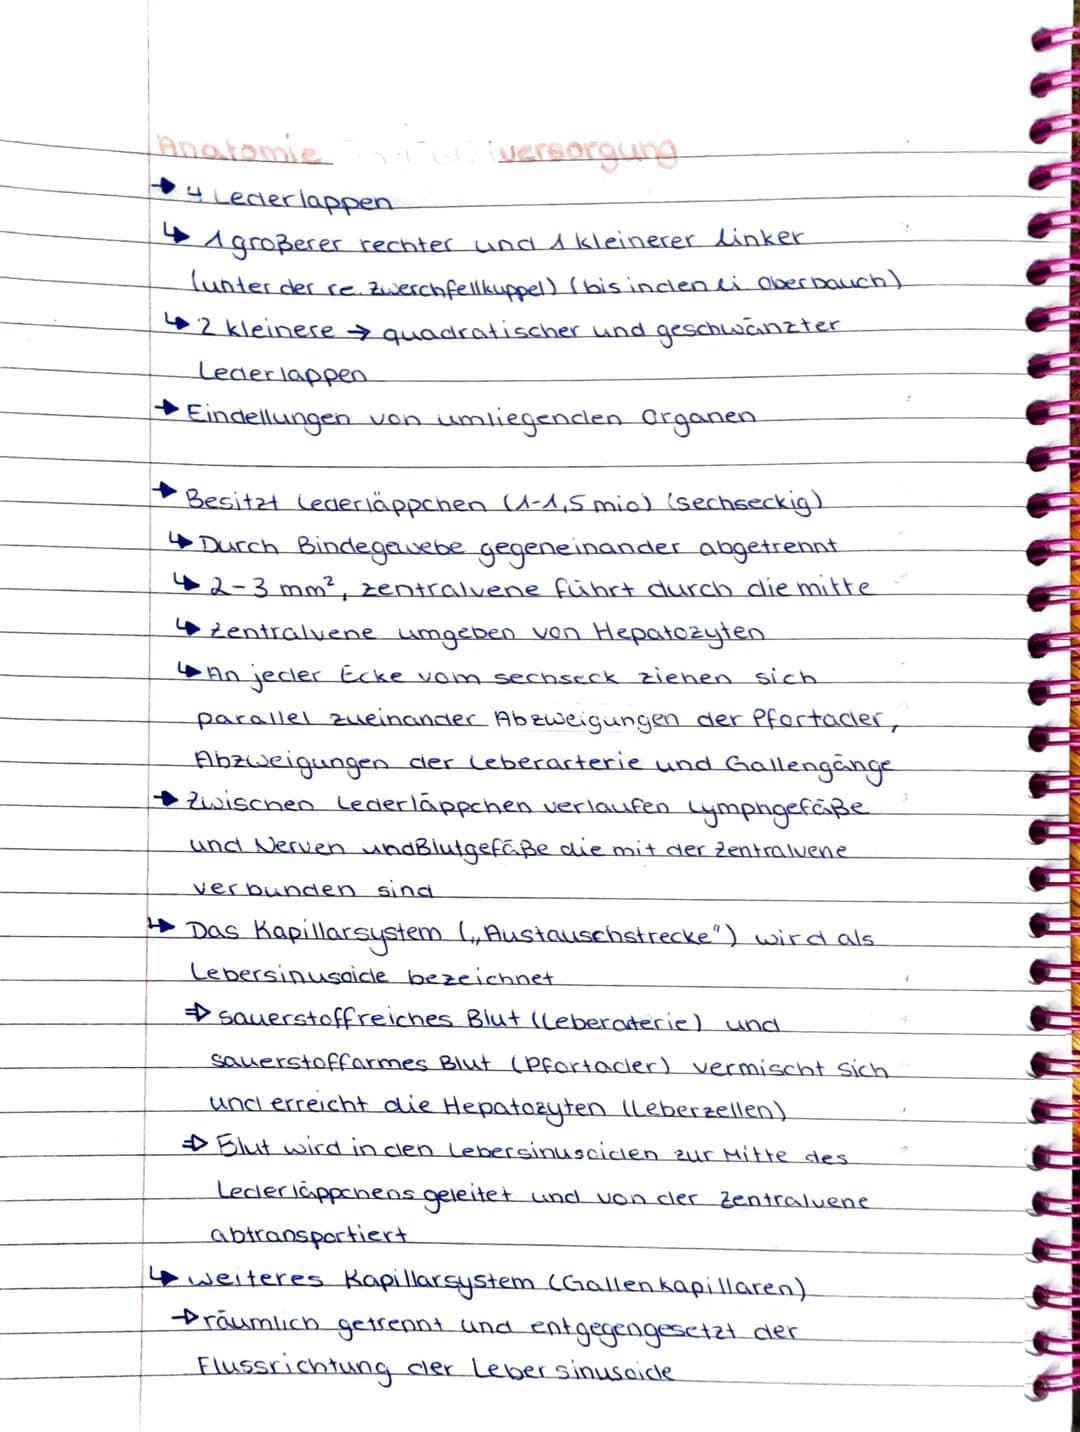 Anatomie versorgung
→ 4 Lederlappen
↳ 1 großerer rechter und 1 kleinerer linker
(unter der re. Zwerchfellkuppel) (bis in den li Oberbauch)
↳ 2 kleinere → quadratischer und geschwänzter
Lederlappen
→ Eindellungen von umliegenden Organen
→ Besitzt Lederläppchen (1-1,5 mio) (sechseckig)
↳ Durch Bindegewebe gegeneinander abgetrennt
↳ 2-3 mm², zentralvene führt durch die mitte
↳ Zentralvene umgeben von Hepatozyten
↳ An jeder Ecke vom sechseck ziehen sich
parallel zueinander Abzweigungen der Pfortader,
Abzweigungen der Leberarterie und Gallengänge
→ Zwischen Lederläppchen verlaufen Lymphgefäße
und Nerven und Blutgefäße die mit der Zentralvene
verbunden sind
↳ Das Kapillarsystem („Austauschstrecke") wird als
Lebersinusoide bezeichnet
⇒ sauerstoffreiches Blut (Leberaterie) und
sauerstoffarmes Blut (Pfortader) vermischt sich
und erreicht die Hepatozyten (Leberzellen)
⇒ Blut wird in den Lebersinusoiden zur Mitte des
Lederläppchens geleitet und von der Zentralvene
abtransportiert
↳ weiteres Kapillarsystem (Gallenkapillaren)
→ räumlich getrennt und entgegengesetzt der
Flussrichtung der Lebersinusoide